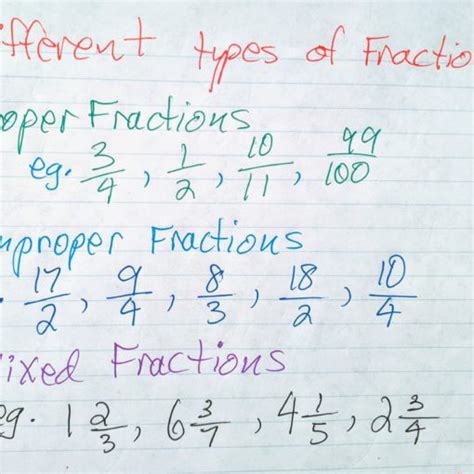 ifferent types of Fractio
oper Fractions
eg. 3/4, 1/2, 10/11, 99/100
mproper Fractions
. 17/2, 9/4, 8/3, 18/2, 10/4
ixed Fractions
eg. 1 2/3, 6 3/7, 4 1/5, 2 3/4